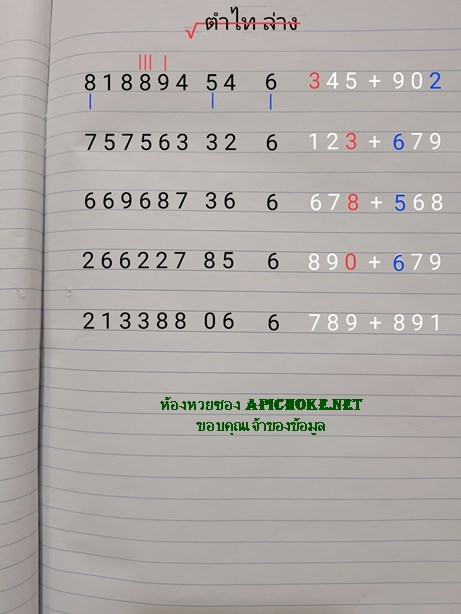 ตำไท ล่าง
818894 54 6 345 + 902
757563 32 6 123 + 679
669687 36 6 678 + 568
266227 85 6 890 + 679
213388 06 6 789 + 891
ห้องหวยซอง APICHOKE.NET
ขอบคุณเจ้าของข้อมูล